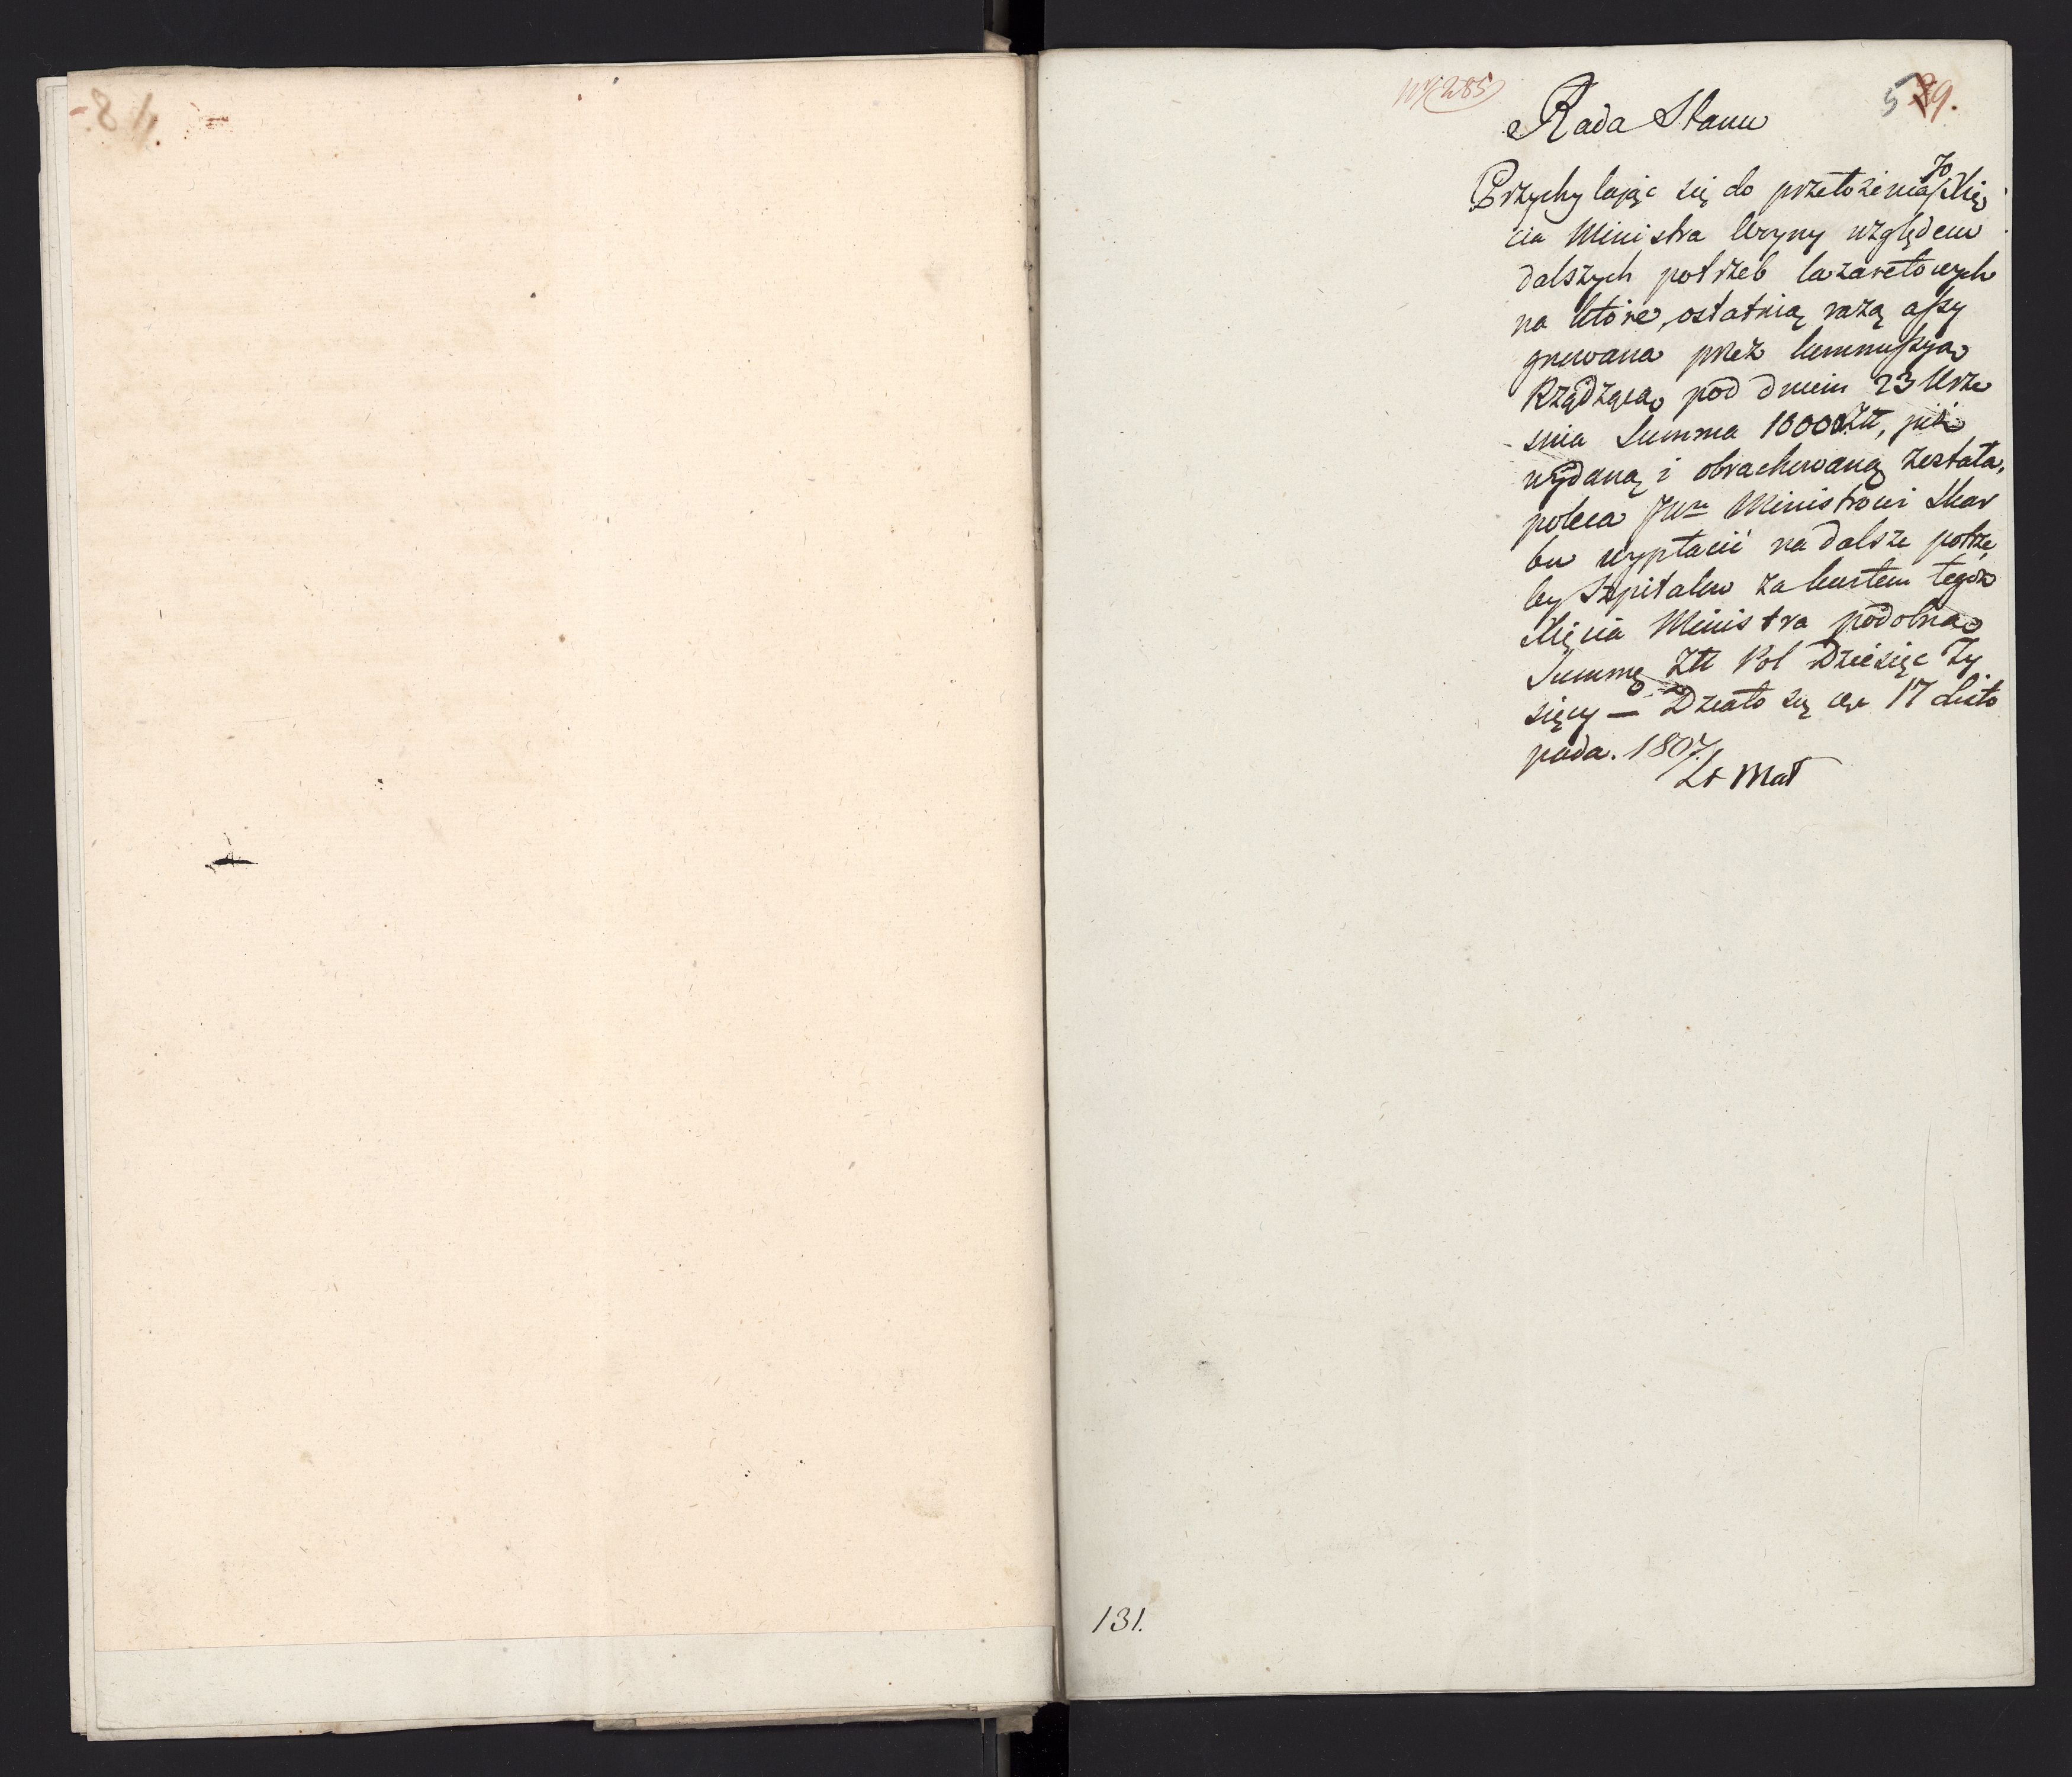 Nr 285
5 39.
Rada Stanu
Przychylając się do przełożenia JO Xię
cia Ministra Woyny względem
dalszych potrzeb lazaretowych
na które, ostatnią razą assy
gnowana przez kommissyą
Rządzącą pod dniem 23 Wrze
snia Summa 10000 Złł, już
wydaną i obrachowaną została,
poleca JWmu Ministrowi Skar
bu wypłacić na dalsze potrze
by Szpitalów za kwitem tegoż
Xięcia Ministra podobną
Summę Złł Pol Dziesięc Ty
sięcy — Działo się dn 17 Listo
pada. 1807.
St Mał
131.